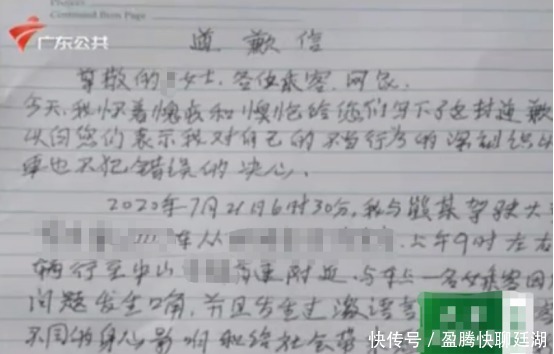 Continued from Page
广东公共
道歉信
尊敬的 女士、各位乘客、网友:
今天,我怀着愧疚和懊悔给您们写下这封道歉
以向您们表示我对自己的不当行为的深刻认识
再也不犯错误的决心。
2020年7月21日6时30分,我与戥某驾驶大
车从 上午9时左右
辆行至中山 高速附近,与车上一名女乘客因
问题发生口角,并且发生过激语言
不同的身心影响和给社会带
快传号/盈腾快聊廷湖